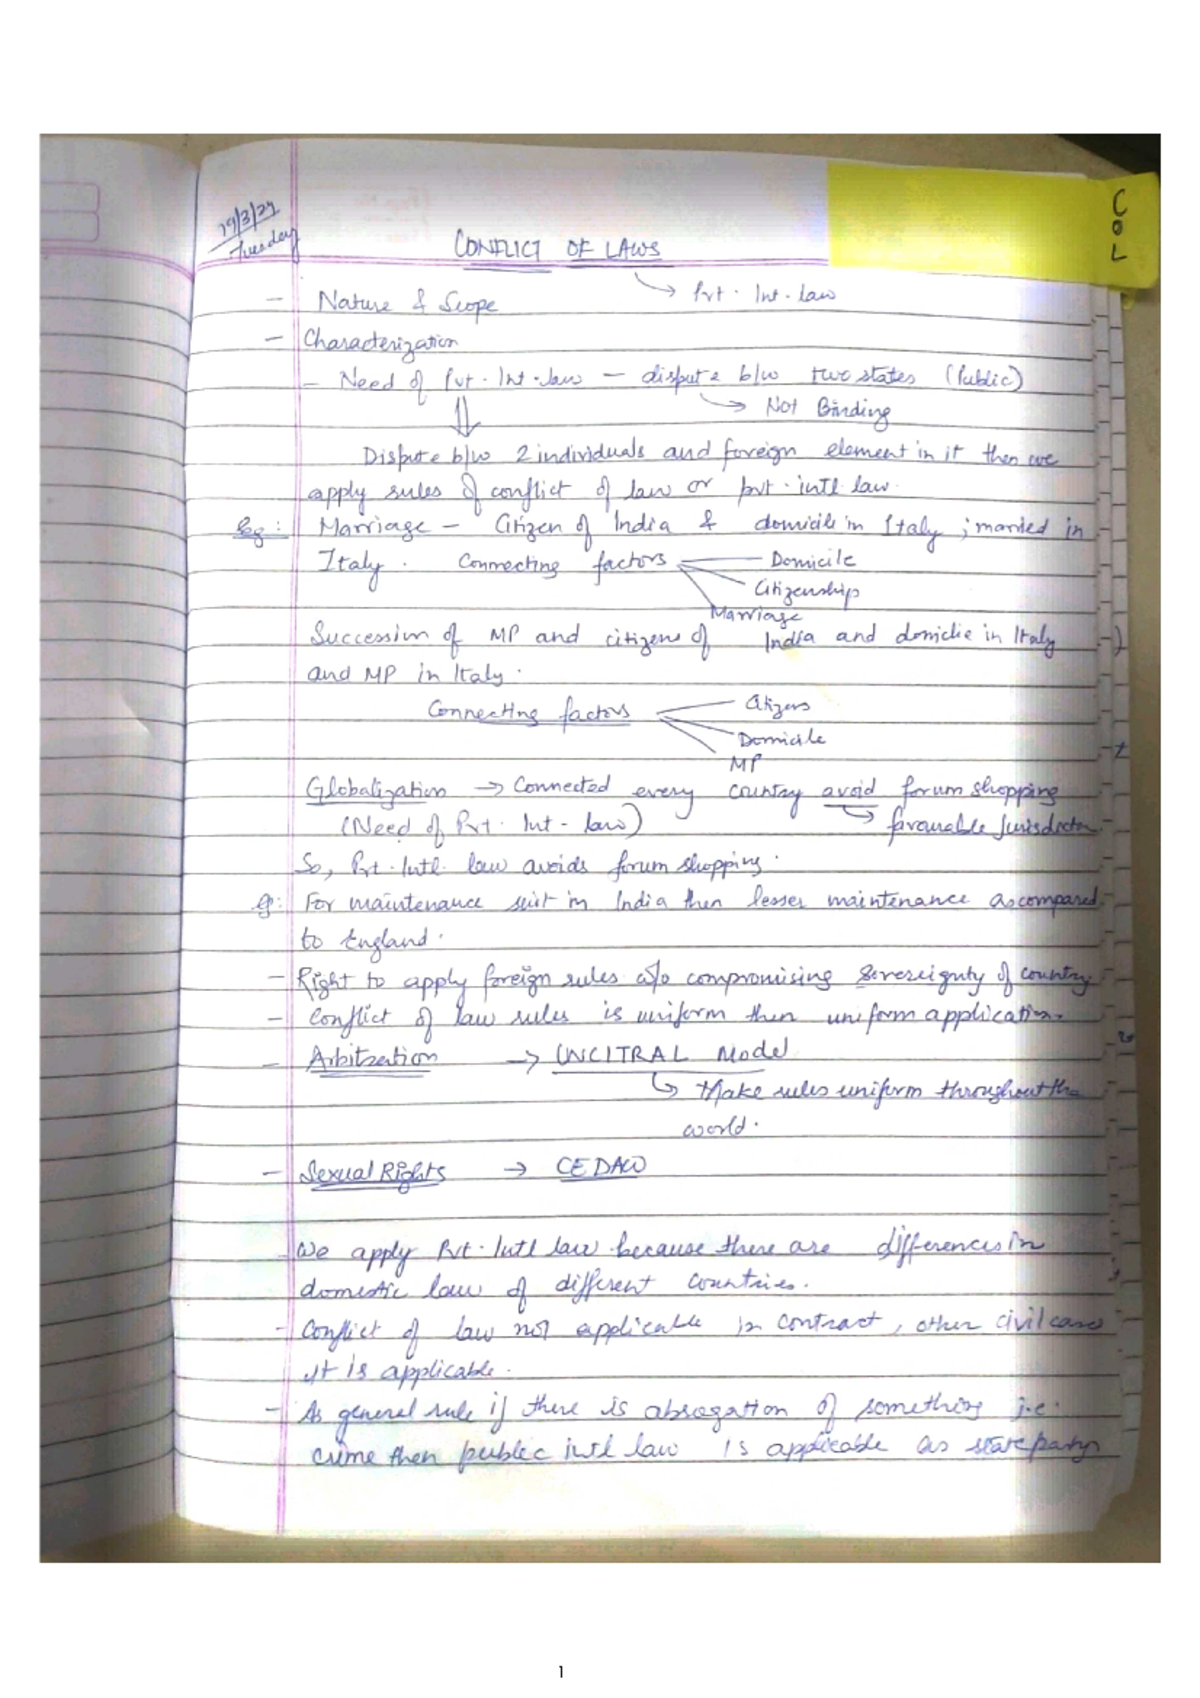 19/3/24
Tuesday
COL
CONFLICT OF LAWS
→ Pvt. Int. law
- Nature & Scope
- Characterization
- Need of Pvt. Int. law - dispute b/w two states (Public)
→ Not Binding
Dispute b/w 2 individuals and foreign element in it then we
apply rules of conflict of law or pvt. intl. law.
Eg: Marriage - Citizen of India & domicile in Italy ; married in
Italy. Connecting factors Domicile
Citizenship
Marriage
Succession of MP and citizens of India and domicile in Italy
and MP in Italy.
Connecting factors Citizens
Domicile
MP
Globalization → Connected every country avoid forum shopping
(Need of Pvt. Int - law) → favourable Jurisdiction.
So, Pvt. Intl. law avoids forum shopping.
Eg: For maintenance suit in India then lesser maintenance as compared
to England.
- Right to apply foreign rules w/o compromising Sovereignty of country
- Conflict of law rules is uniform then uniform application.
- Arbitration → UNCITRAL Model
↳ Make rules uniform throughout the
world.
- Sexual Rights → CEDAW
- We apply Pvt. Intl law because there are differences in
domestic law of different countries.
- Conflict of law not applicable in contract, other civil cases
it is applicable.
- As general rule if there is abrogation of something i.e.
crime then public intl law is applicable as state party
1